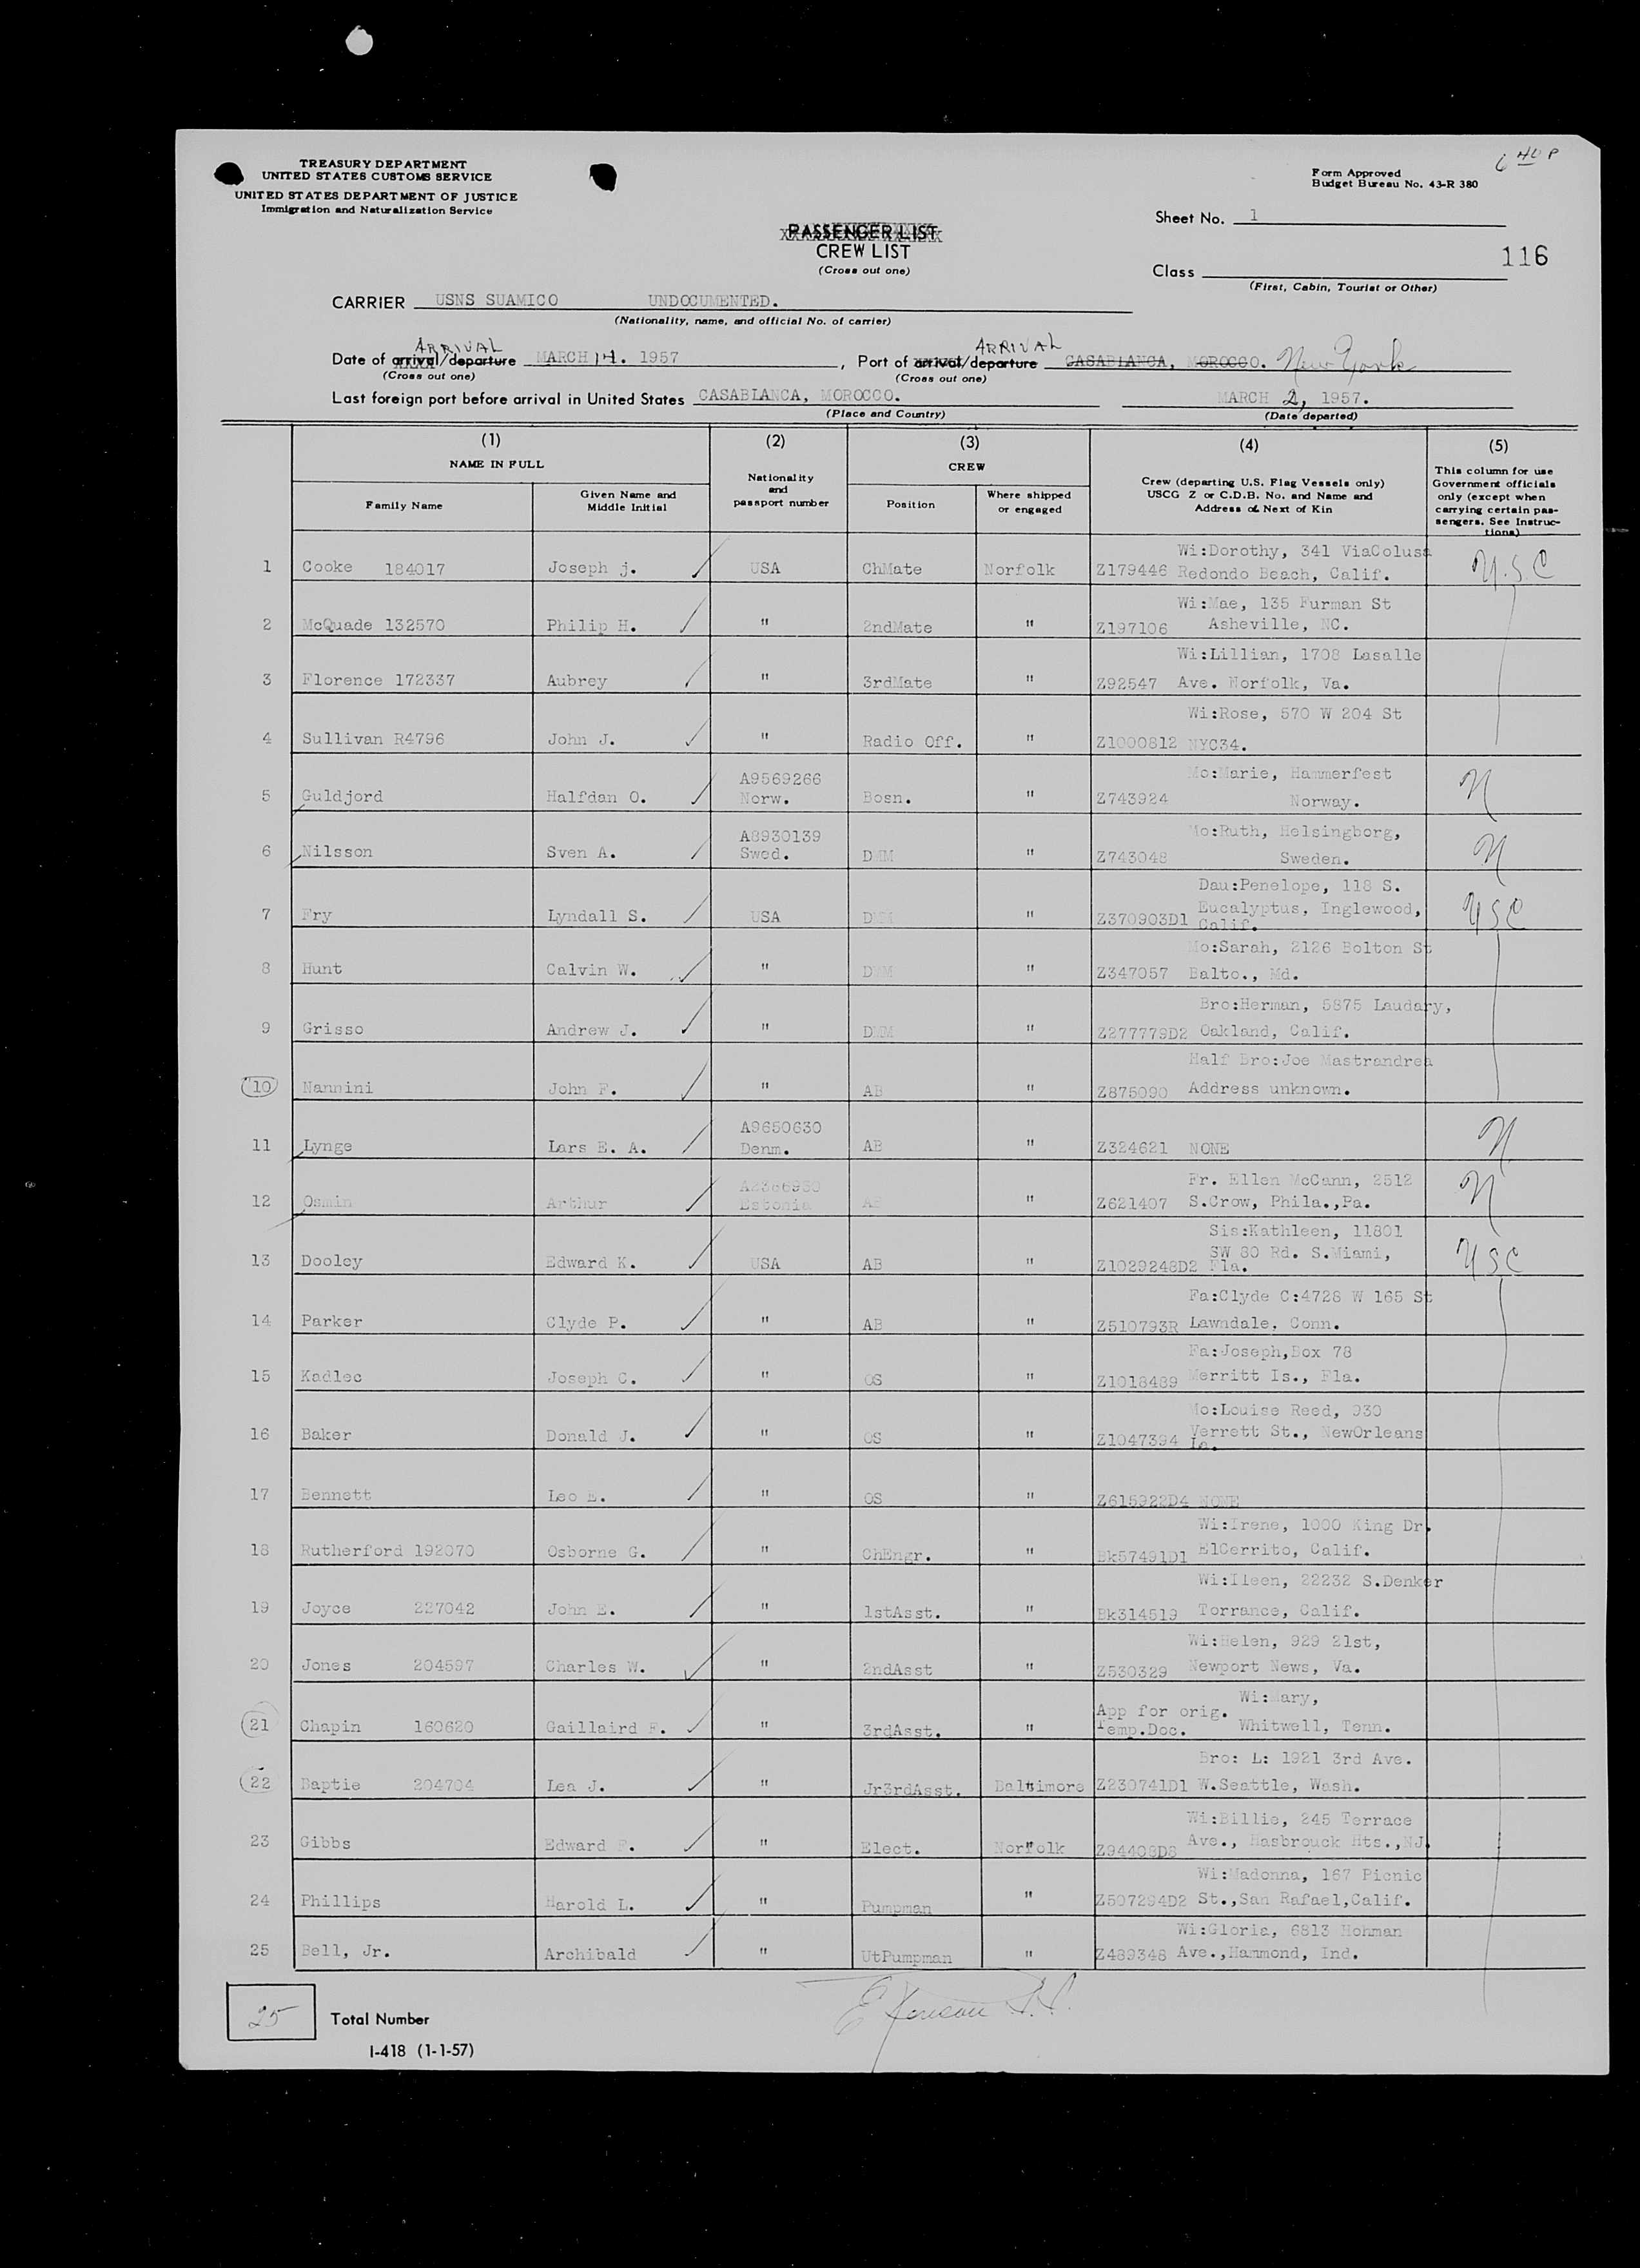 6 40 P
TREASURY DEPARTMENT
UNITED STATES CUSTOMS SERVICE
UNITED STATES DEPARTMENT OF JUSTICE
Immigration and Naturalization Service
Form Approved
Budget Bureau No. 43-R 380
Sheet No. 1
PASSENGER LIST
CREW LIST
(Cross out one)
116
Class
(First, Cabin, Tourist or Other)
CARRIER USNS SUAMICO UNDOCUMENTED.
(Nationality, name, and official No. of carrier)
ARRIVAL ARRIVAL
Date of arrival/departure MARCH 14. 1957, Port of arrival/departure CASABLANCA, MOROCCO. New York
(Cross out one) (Cross out one)
Last foreign port before arrival in United States CASABLANCA, MOROCCO. MARCH 2, 1957.
(Place and Country) (Date departed)
(1) (2) (3) (4) (5)
NAME IN FULL
Family Name
Given Name and Middle Initial
Nationality and passport number
CREW
Position
Where shipped or engaged
Crew (departing U.S. Flag Vessels only)
USCG Z or C.D.B. No. and Name and
Address of Next of Kin
This column for use
Government officials
only (except when
carrying certain pas-
sengers. See Instruc-
tions)
1 Cooke 184017 Joseph j. USA ChMate Norfolk Z179446 Wi:Dorothy, 341 ViaColusa Redondo Beach, Calif. U.S.C
2 McQuade 132570 Philip H. " 2ndMate " Z197106 Wi:Mae, 135 Furman St Asheville, NC.
3 Florence 172337 Aubrey " 3rdMate " Z92547 Wi:Lillian, 1708 Lasalle Ave. Norfolk, Va.
4 Sullivan R4796 John J. " Radio Off. " Z1000812 Wi:Rose, 570 W 204 St NYC34.
5 Guldjord Halfdan O. A9569266 Norw. Bosn. " Z743924 Mo:Marie, Hammerfest Norway. N
6 Nilsson Sven A. A8930139 Swed. DMM " Z743048 Mo:Ruth, Helsingborg, Sweden. N
7 Fry Lyndall S. USA DMM " Z370903D1 Dau:Penelope, 118 S. Eucalyptus, Inglewood, Calif. USC
8 Hunt Calvin W. " DMM " Z347057 Mo:Sarah, 2126 Bolton St Balto., Md.
9 Grisso Andrew J. " DMM " Z277779D2 Bro:Herman, 5875 Laudary, Oakland, Calif.
10 Nannini John F. " AB " Z875090 Half Bro:Joe Mastrandrea Address unknown.
11 Lynge Lars E. A. A9650630 Denm. AB " Z324621 NONE N
12 Osmin Arthur Estonia AB " Z621407 Fr. Ellen McCann, 2512 S.Crow, Phila.,Pa. N
13 Dooley Edward K. USA AB " Z1029248D2 Sis:Kathleen, 11801 SW 80 Rd. S.Miami, Fla. USC
14 Parker Clyde P. " AB " Z510793R Fa:Clyde C:4728 W 165 St Lawndale, Conn.
15 Kadlec Joseph C. " OS " Z1018489 Fa:Joseph,Box 78 Merritt Is., Fla.
16 Baker Donald J. " OS " Z1047394 Mo:Louise Reed, 930 Verrett St., NewOrleans La.
17 Bennett Leo E. " OS " Z615922D4 NONE
18 Rutherford 192070 Osborne G. " ChEngr. " Bk57491D1 Wi:Irene, 1000 King Dr. ElCerrito, Calif.
19 Joyce 227042 John E. " 1stAsst. " Bk314519 Wi:Ileen, 22232 S.Denker Torrance, Calif.
20 Jones 204597 Charles W. " 2ndAsst " Z530329 Wi:Helen, 929 21st, Newport News, Va.
21 Chapin 160620 Gaillaird F. " 3rdAsst. " App for orig. Temp.Doc. Wi:Mary, Whitwell, Tenn.
22 Baptie 204704 Lea J. " Jr3rdAsst. Baltimore Z230741D1 Bro: L: 1921 3rd Ave. W.Seattle, Wash.
23 Gibbs Edward F. " Elect. Norfolk Z94408D8 Wi:Billie, 245 Terrace Ave., Hasbrouck Hts.,NJ.
24 Phillips Harold L. " Pumpman " Z507294D2 Wi:Madonna, 167 Picnic St.,San Rafael,Calif.
25 Bell, Jr. Archibald " UtPumpman " Z489348 Wi:Gloria, 6813 Hohman Ave.,Hammond, Ind.
25 Total Number
I-418 (1-1-57)